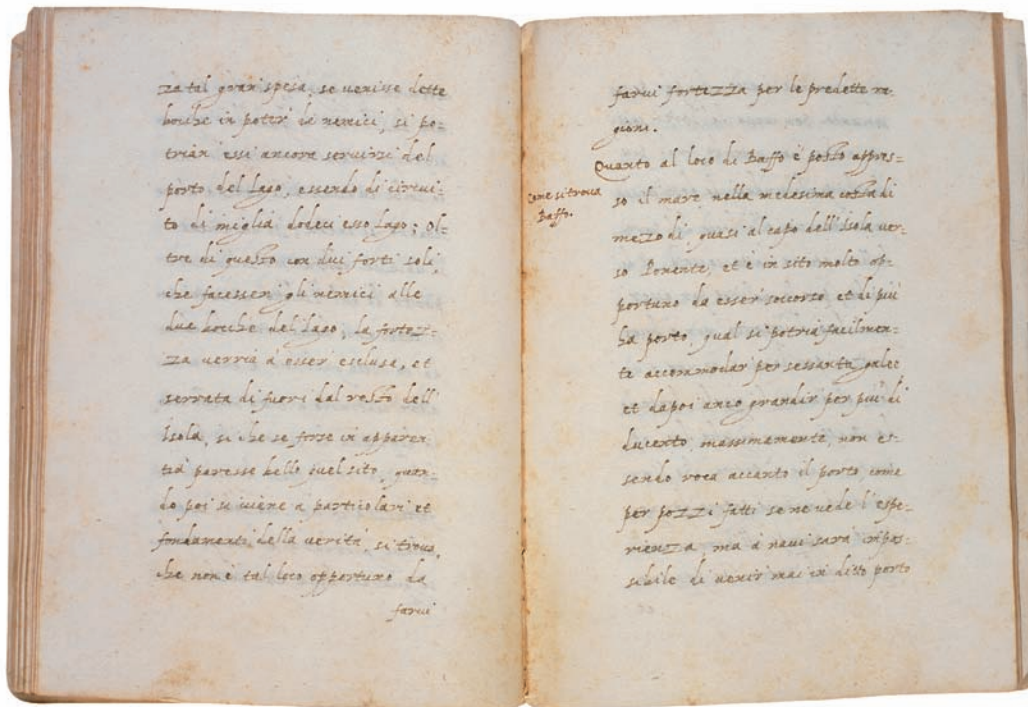 za tal gran spesa, se venisse dette
bocche in poter da nemici, si po-
trian essi ancora servirsi del
porto del Lago, essendo di circui-
to di miglia dodeci esso Lago; Ol-
tre di questo con dui forti soli,
che facessen gli nemici alle
due bocche del Lago, la fortez-
za verria à esser esclusa, et
serrata di fuori dal resto dell'
Isola, si che se forse in apparen
tia paresse bello quel sito, quan-
do poi si viene a particolari et
fondamenti della verità, si trova,
che non è tal loco opportuno da
farvi
farvi fortezza per le predette ra-
gioni.
Come si trova
Baffo.
Quanto al loco di Baffo è posto appres-
so il mare nella medesima costa di
mezo di, quasi al capo dell'Isola ver-
so Ponente, et è in sito molto op-
portuno da esser soccorso et di più
ha porto, qual si potria facilmen-
te accommodar per sessanta galee
et dapoi anco grandir per più di
ducento, massimamente, non es-
sendo roca accanto il porto, come
per pozzi fatti se ne vede l'espe-
rienza, ma à navi sarà impos-
sibile di venir mai in ditto porto